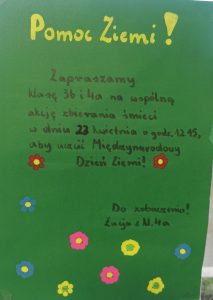 Pomoc Ziemi!
Zapraszamy
klasę 3b i 4a na wspólną
akcję zbierania śmieci
w dniu 23 kwietnia o godz. 12 45,
aby uczcić Międzynarodowy
Dzień Ziemi!
Do zobaczenia!
Łucja z kl. 4a